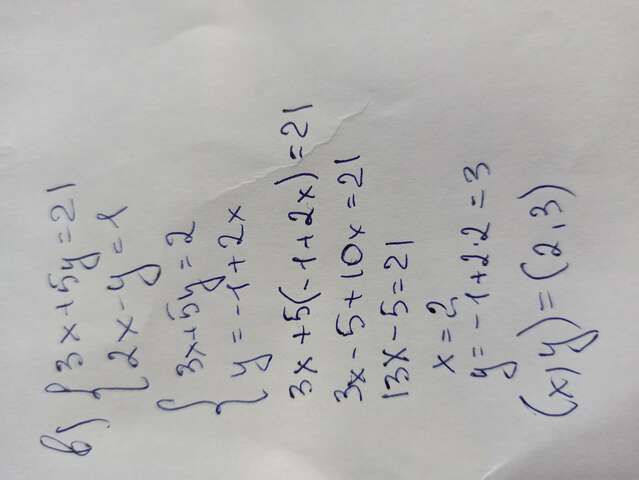 в) { 3x+5y=21
2x-y=1
{ 3x+5y=2
y=-1+2x
3x+5(-1+2x)=21
3x-5+10x=21
13x-5=21
x=2
y=-1+2·2=3
(x,y)=(2,3)